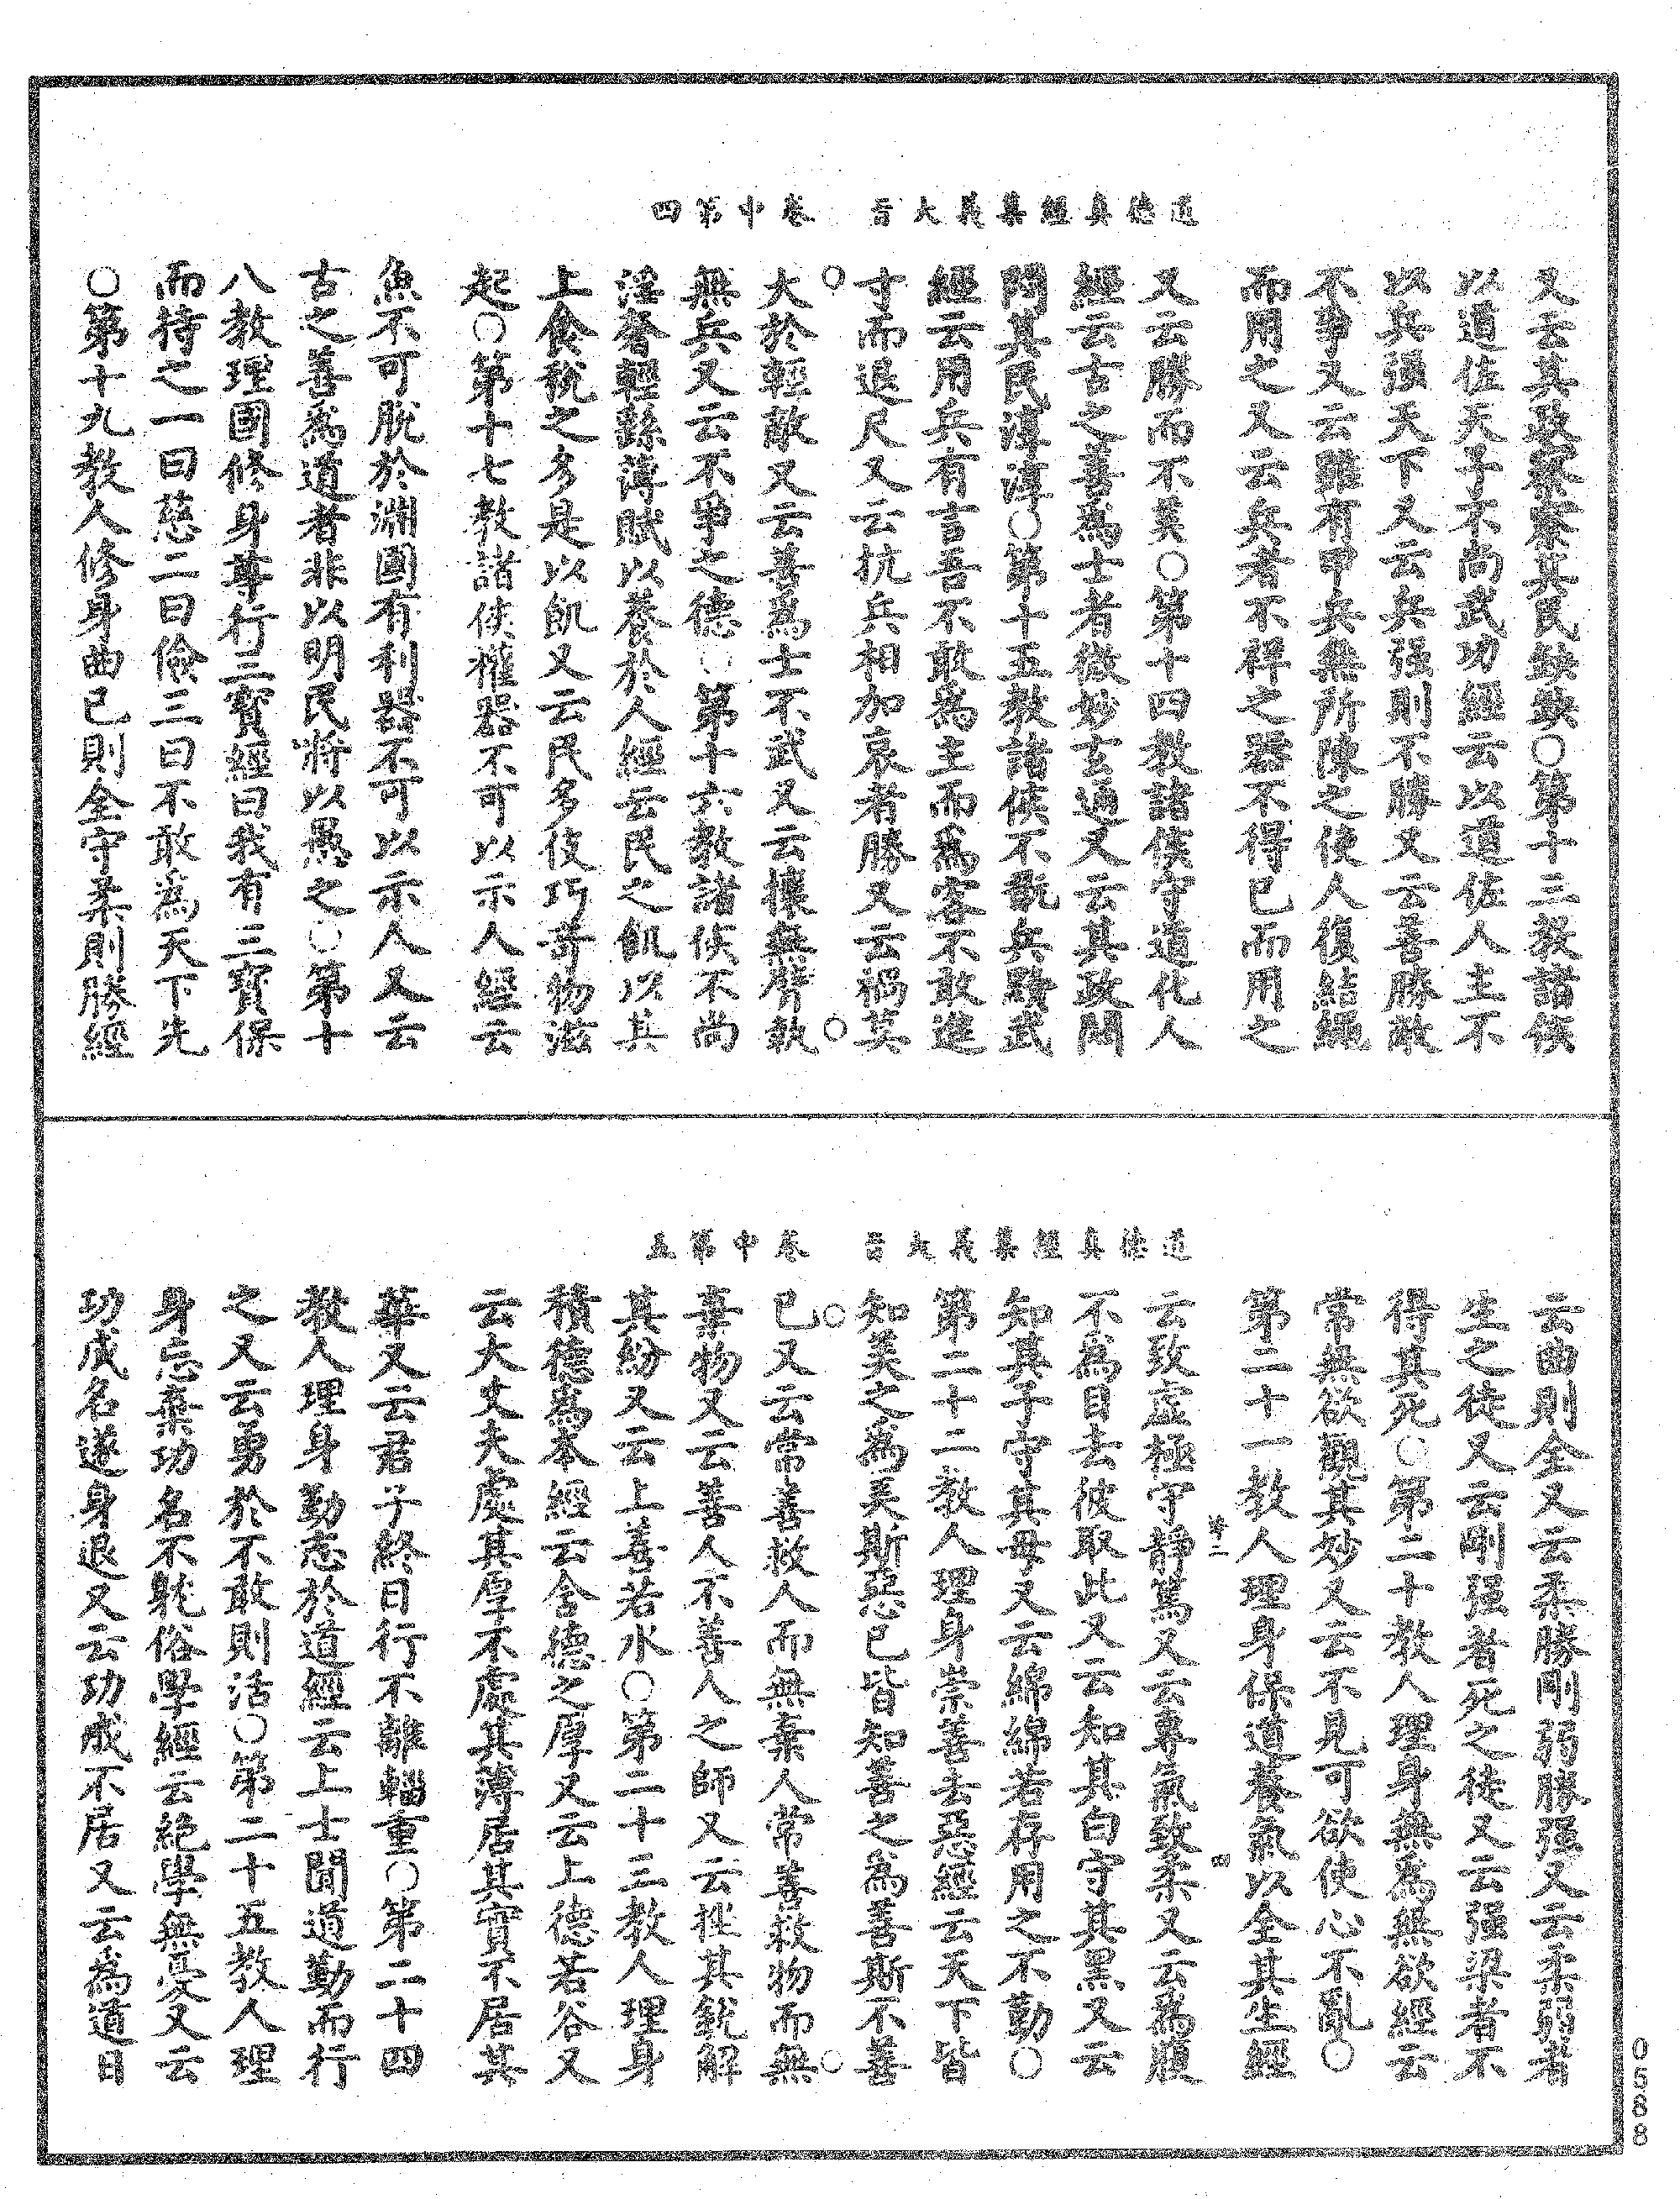 道德真經集義大旨　卷中第四
又云其政察察其民缺缺○第十三教諸侯
以道佐天子不尚武功經云以道佐人主不
以兵强天下又云兵强則不勝又云善勝敵
不爭又云雖有甲兵無所陳之使人復結繩
而用之又云兵者不祥之器不得已而用之
又云勝而不美○第十四教諸侯守道化人
經云古之善爲士者微妙玄通又云其政悶
悶其民淳淳○第十五教諸侯不翫兵黷武
經云用兵有言吾不敢爲主而爲客不敢進
寸而退尺又云抗兵相加哀者勝又云禍莫
大於輕敵又云善爲士不武又云攘無臂執
無兵又云不爭之德○第十六教諸侯不尚
淫奢輕繇薄賦以養於人經云民之飢以其
上食稅之多是以飢又云民多伎巧奇物滋
起○第十七教諸侯權器不可以示人經云
魚不可脫於淵國有利器不可以示人又云
古之善爲道者非以明民將以愚之○第十
八教理國修身尊行三寶經曰我有三寶保
而持之一曰慈二曰儉三曰不敢爲天下先
○第十九教人修身曲己則全守柔則勝經
道德真經集義大旨　卷中第五
云曲則全又云柔勝剛弱勝强又云柔弱者
生之徒又云剛强者死之徒又云强梁者不
得其死○第二十教人理身無爲無欲經云
常無欲觀其妙又云不見可欲使心不亂○
第二十一教人理身保道養氣以全其生經
云致虛極守靜篤又云專氣致柔又云爲腹
不爲目去彼取此又云知其白守其黑又云
知其子守其母又云綿綿若存用之不勤○
第二十二教人理身崇善去惡經云天下皆
知美之為美斯惡已皆知善之為善斯不善
已又云常善救人而無棄人常善救物而無
棄物又云善人不善人之師又云挫其銳解
其紛又云上善若水○第二十三教人理身
積德爲本經云含德之厚又云上德若谷又
云大丈夫處其厚不處其薄居其實不居其
華又云君子終日行不離輜重○第二十四
教人理身勤志於道經云上士聞道勤而行
之又云勇於不敢則活○第二十五教人理
身忘棄功名不躭俗學經云絕學無憂又云
功成名遂身退又云功成不居又云爲道日
0588